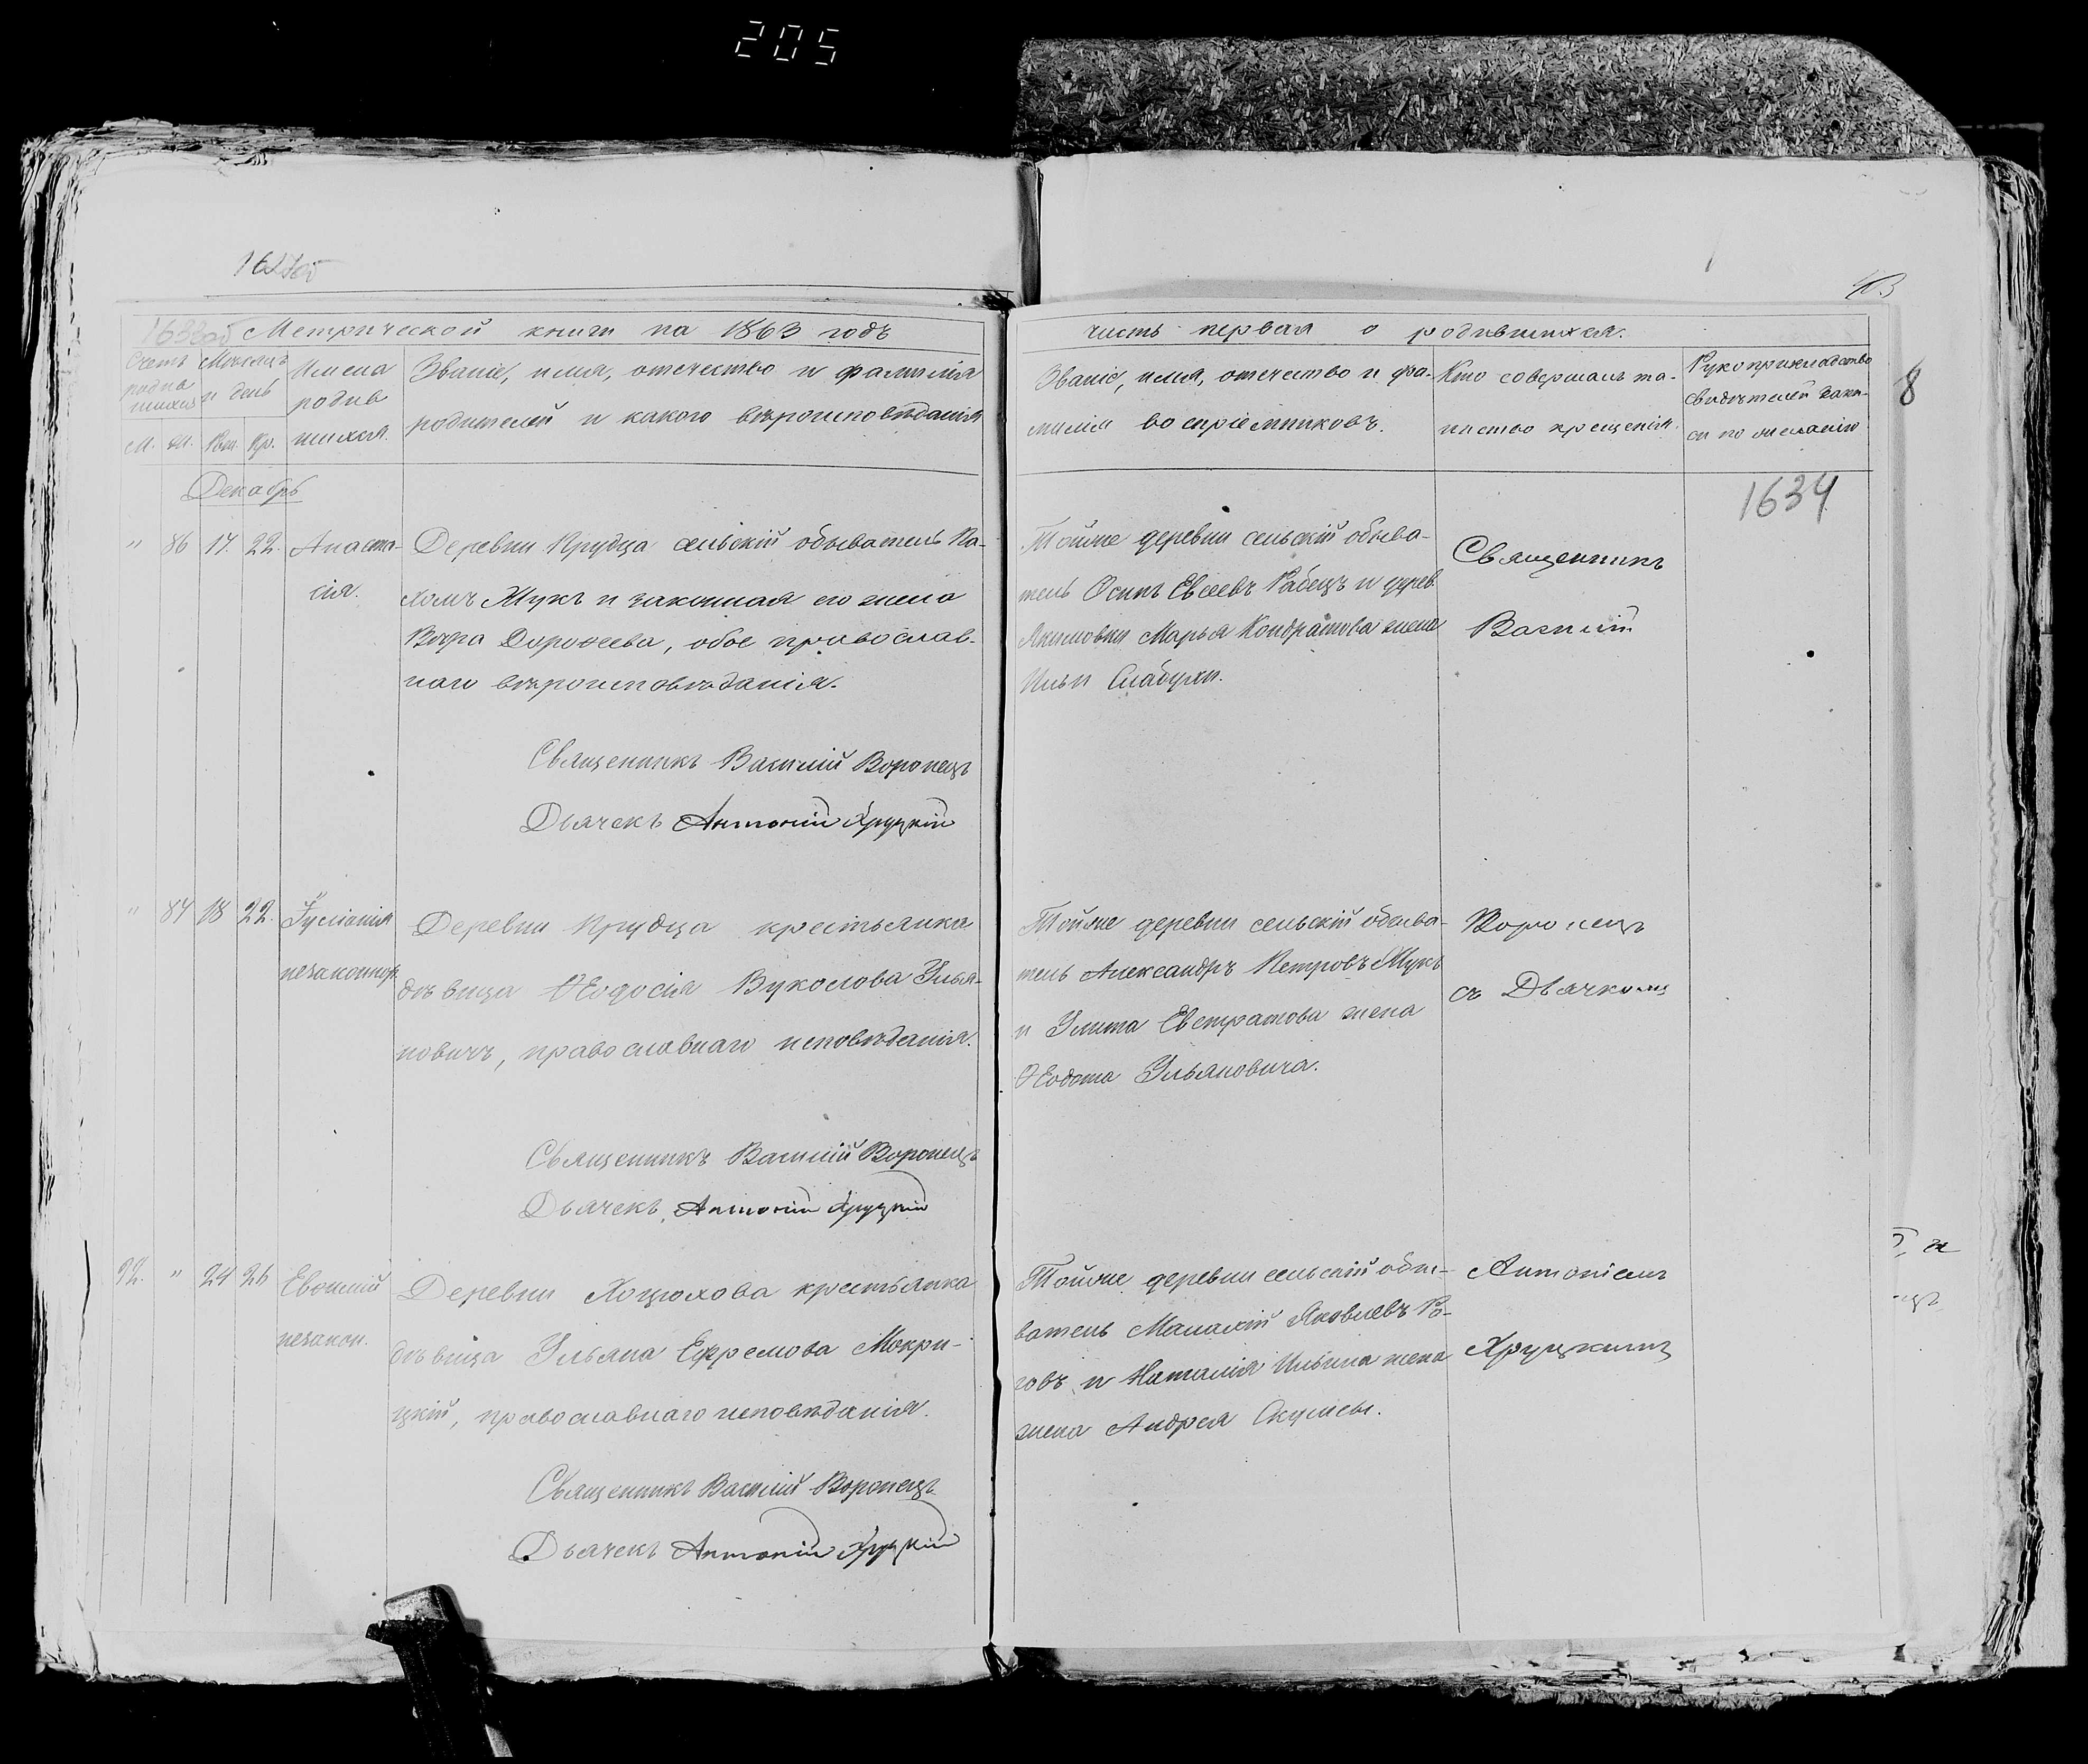 205
1633об Метрической книги на 1863 годъ
Счетъ родившихся
Месяцъ и день
Имена родившихся
Званіе, имя, отечество и фамилія
родителей и какого вѣроисповѣданія
М. Ж. Рож. Кр.
Декабрь
" 86 17. 22. Анаста-
сія.
Деревни Прудца сельскій обыватель Па-
хомъ Жукъ и законная его жена
Вѣра Дорофеева, обое православ-
наго вѣроисповѣданія.
Священникъ Василій Воронецъ
Дьячекъ Антоній Хруцкій
" 87 18 22. Іуліанія
незаконнор.
Деревни Прудца крестьянка
дѣвица Ѳеодосія Вуколова Улья-
новичъ, православнаго исповѣданія.
Священникъ Василій Воронецъ
Дьячекъ Антоній Хруцкій
92. " 24 26 Евѳимій
незакон.
Деревни крестьянка
дѣвица Ульяна Ефремова Мокри-
цкій, православнаго исповѣданія.
Священникъ Василій Воронецъ
Дьячекъ Антоній Хруцкій
403
часть первая о родившихся.
Званіе, имя, отечество и фа-
милія воспріемниковъ.
Кто совершалъ та-
инство крещенія.
Рукоприкладство
свидѣтелей запи-
си по желанію
8
1634
Тойже деревни сельскій обыва-
тель Осипъ Евсеевъ Рабецъ и дерев.
Якимовки Марья Кондратова жена
Ильи Слабухи.
Священникъ
Василій
Тойже деревни сельскій обыва-
тель Александръ Петровъ Жукъ
и Улита Евстратова жена
Ѳеодота Ульяновича.
Воронецъ
съ Дьячкомъ
Тойже деревни сельскій обы-
ватель Малахій Яковлевъ Ро-
говъ и Наталія Ильина жена
жена Андрея
Антоніемъ
Хруцкимъ